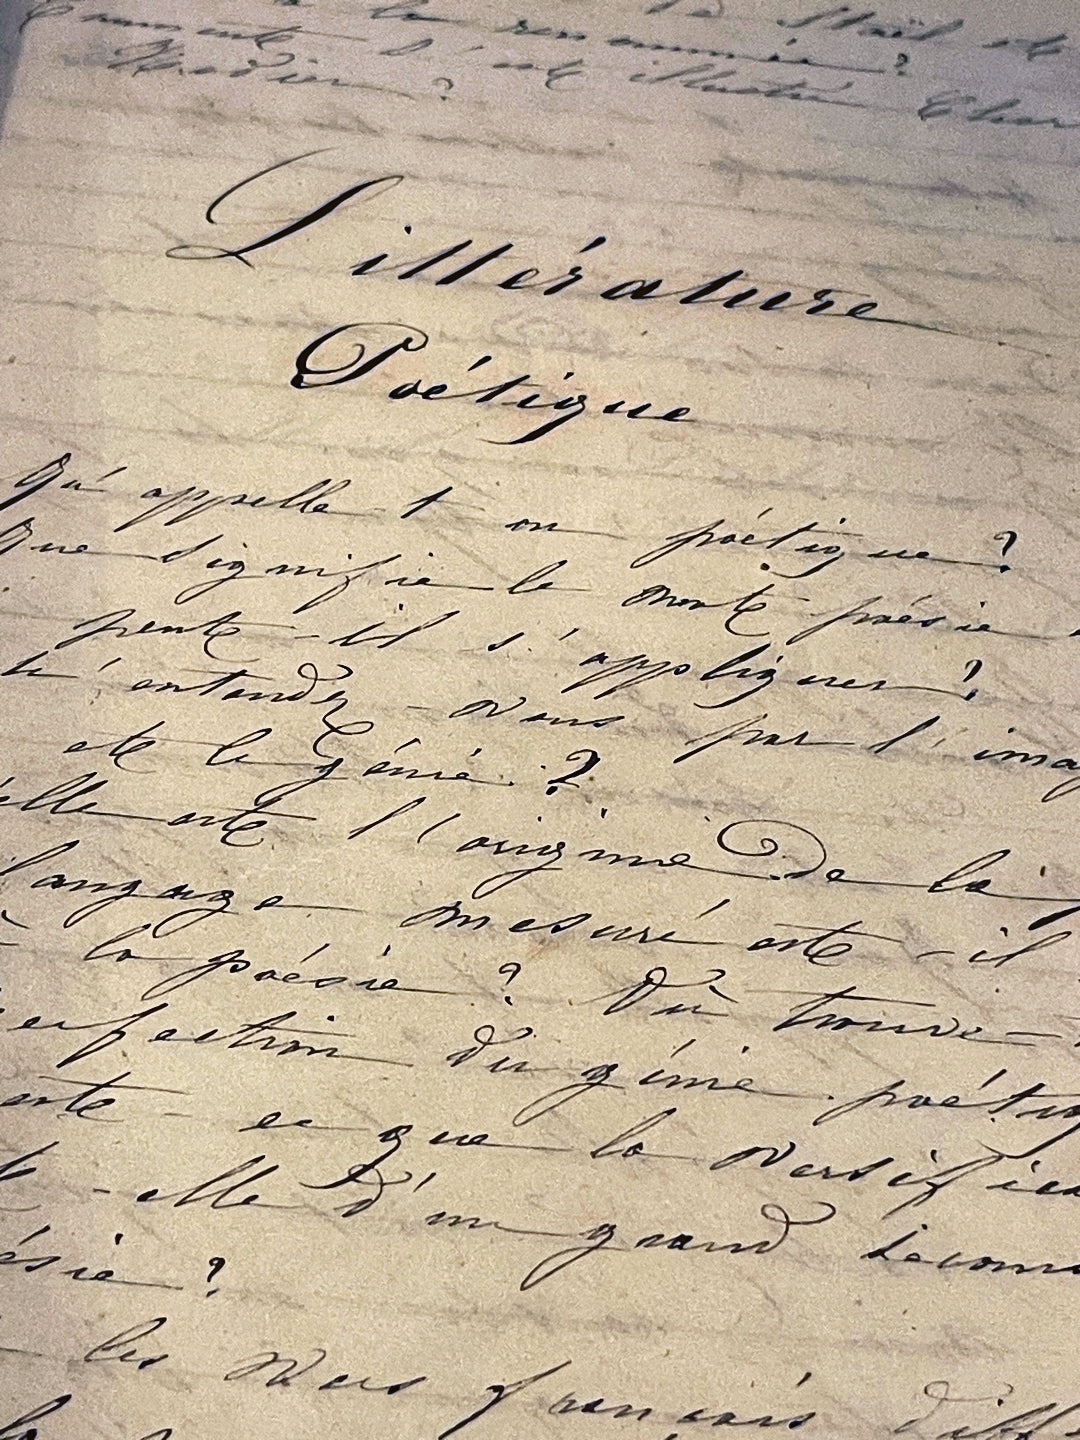 la renommée? de Staël et
s'est illustré Char
Nodier?
Littérature
Poétique
Qu'appelle t on poétique?
Que signifie le mot poésie
peut-il s'appliquer?
entendez-vous par l'imag
et le génie?
elle est l'origine de la
langage mesuré est-il
à la poésie? Où trouve-
erfection du génie poétiq
est-ce que la versifica
-elle d'un grand secours
ésie?
les vers français diff